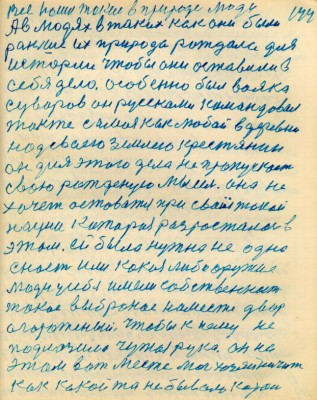 все наши такие в природе люди 144
А в людях в таких как они были
ранние их природа рождала для
истории чтобы они оставили в
себя дело, особенно был вояка
суваров он руссками командовал
также самая как любой в деревни
над своею землею крестьянин
он для этого дела не пропускает
свою рожденую мысль. она не
хочет остоватя при своей такой
нации Которая разросталась в
этом. ей была нужна не одно
сност или какоя либо оружие
люди у себя имели собственност
такое выброное на месте двор
огороженый. чтобы к нему не
подлючило чужая рука. он на
этом вот месте мог хозяйничит
как какой та небывалу